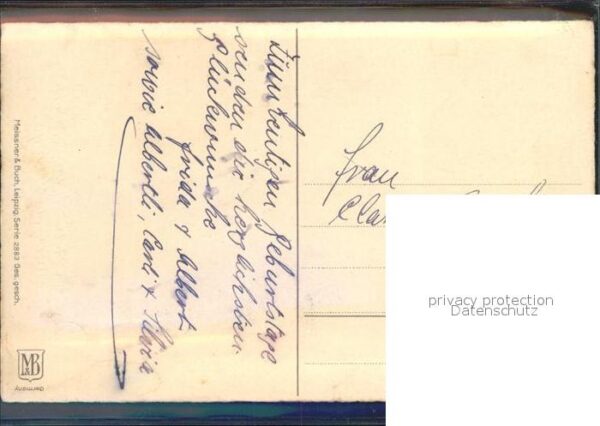 Zum heutigen Geburtstage
senden dir herzlichsten
Glückwünsche
Frida & Albert
sowie Albertli, Carli & Silvia
Frau
Meissner & Buch, Leipzig, Serie 2883 Ges. gesch.
MB
Germany
privacy protection
Datenschutz